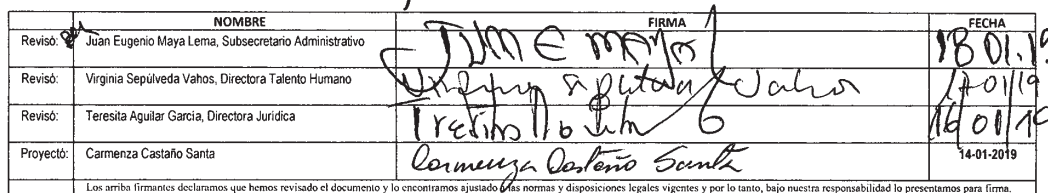 NOMBRE FIRMA FECHA
Revisó: Juan Eugenio Maya Lema, Subsecretario Administrativo JUAN E MAYA 18 01.19
Revisó: Virginia Sepúlveda Vahos, Directora Talento Humano Virginia Sepulveda Vahos 17-01/19
Revisó: Teresita Aguilar García, Directora Jurídica 16/01/19
Proyectó: Carmenza Castaño Santa Carmenza Castaño Santa 14-01-2019
Los arriba firmantes declaramos que hemos revisado el documento y lo encontramos ajustado a las normas y disposiciones legales vigentes y por lo tanto, bajo nuestra responsabilidad lo presentamos para firma.